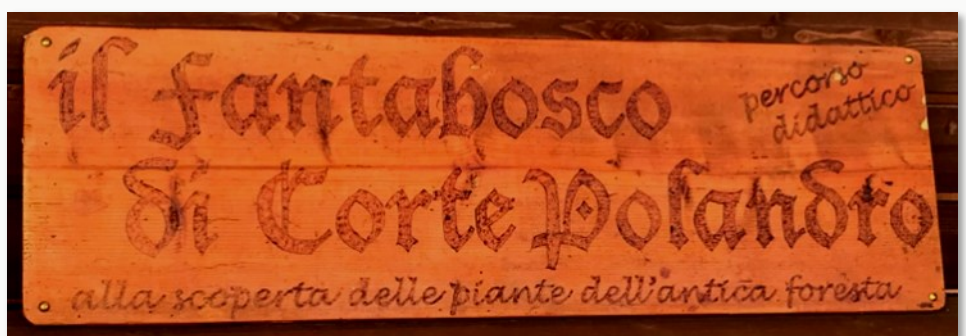 il Fantabosco
percorso
didattico
di Corte Polandro
alla scoperta delle piante dell'antica foresta